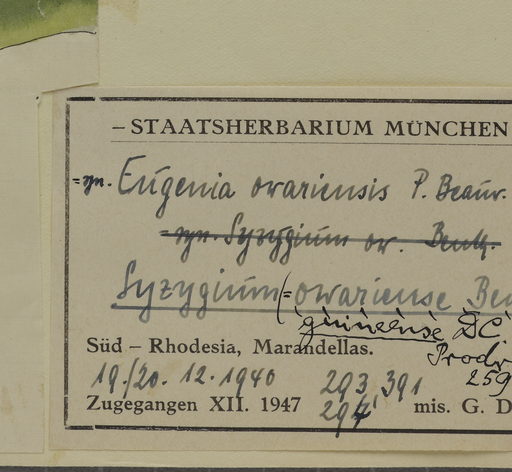 – STAATSHERBARIUM MÜNCHEN
= syn. Eugenia owariensis P. Beauv.
syn. Syzygium ow. Benth.
Syzygium (= owariense Ben
guineense DC
Süd – Rhodesia, Marandellas.
Prodr
19./20. 12. 1940 293, 391 259
Zugegangen XII. 1947 294 mis. G. D